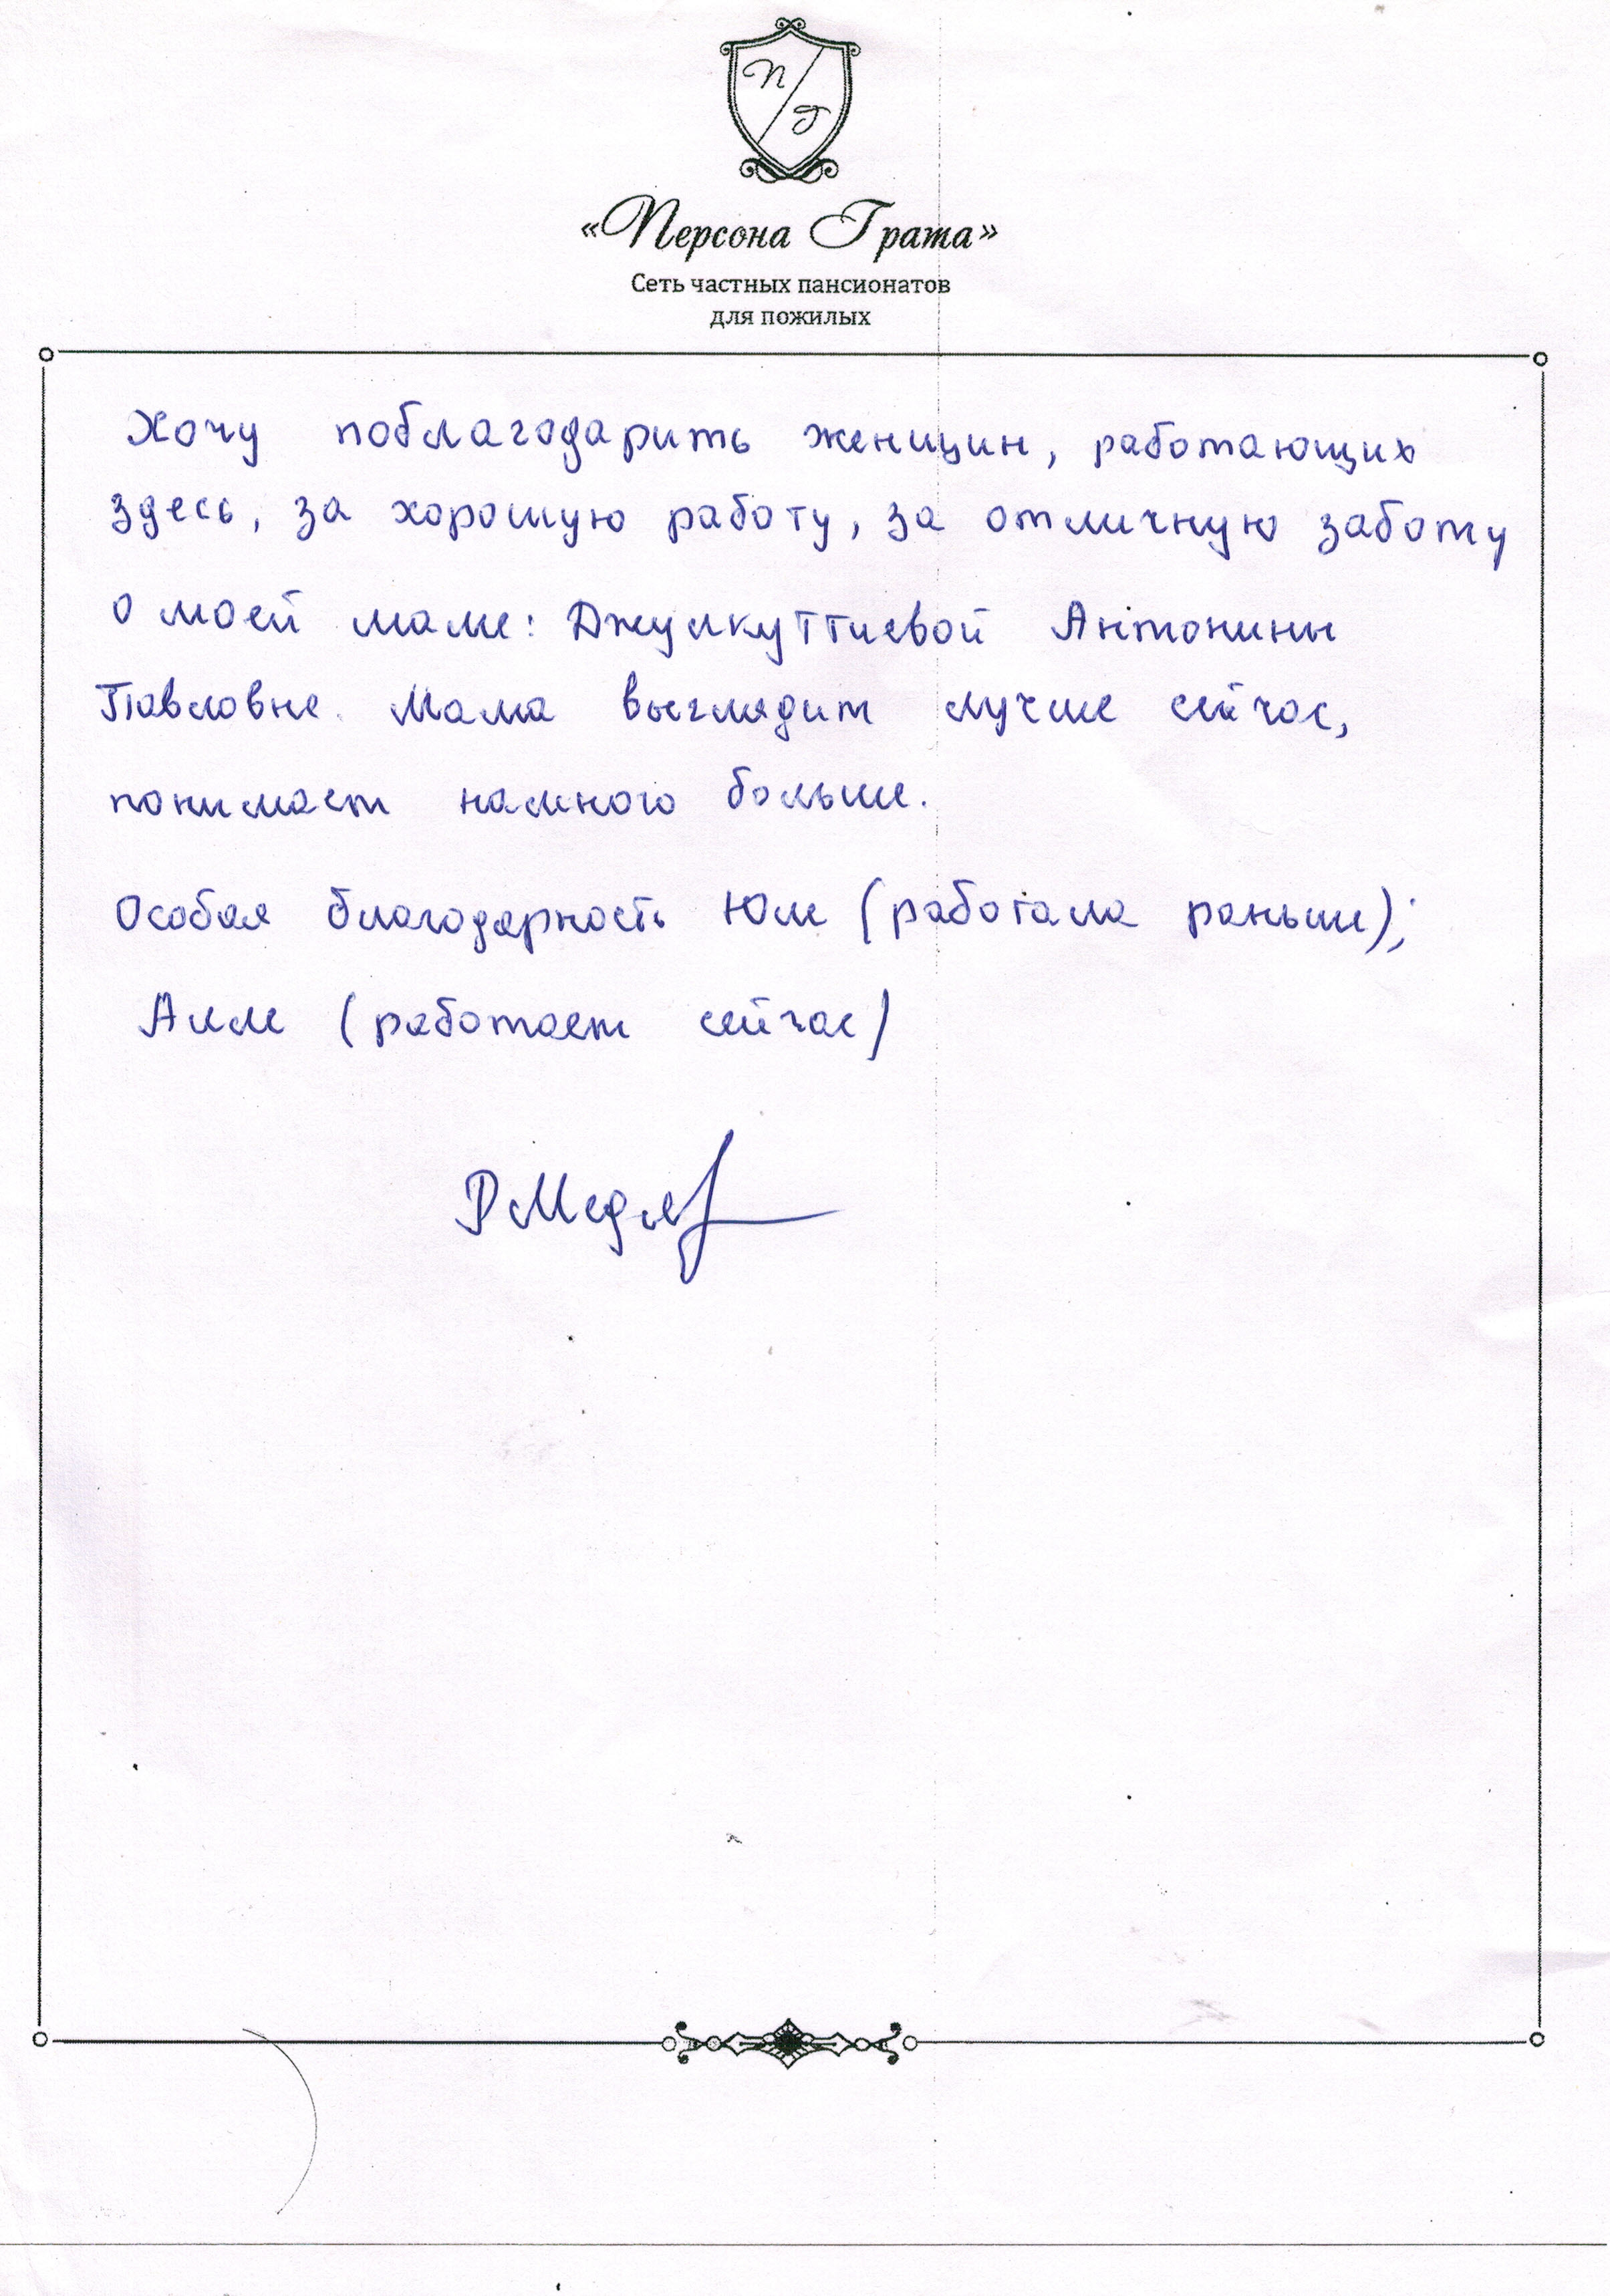 П
Г
«Персона Грата»
Сеть частных пансионатов
для пожилых
Хочу поблагодарить женщин, работающих
здесь, за хорошую работу, за отличную заботу
о моей маме: Антонины
Павловне. Мама выглядит лучше сейчас,
понимает намного больше.
Особая благодарность Юле (работала раньше);
Алле (работает сейчас)